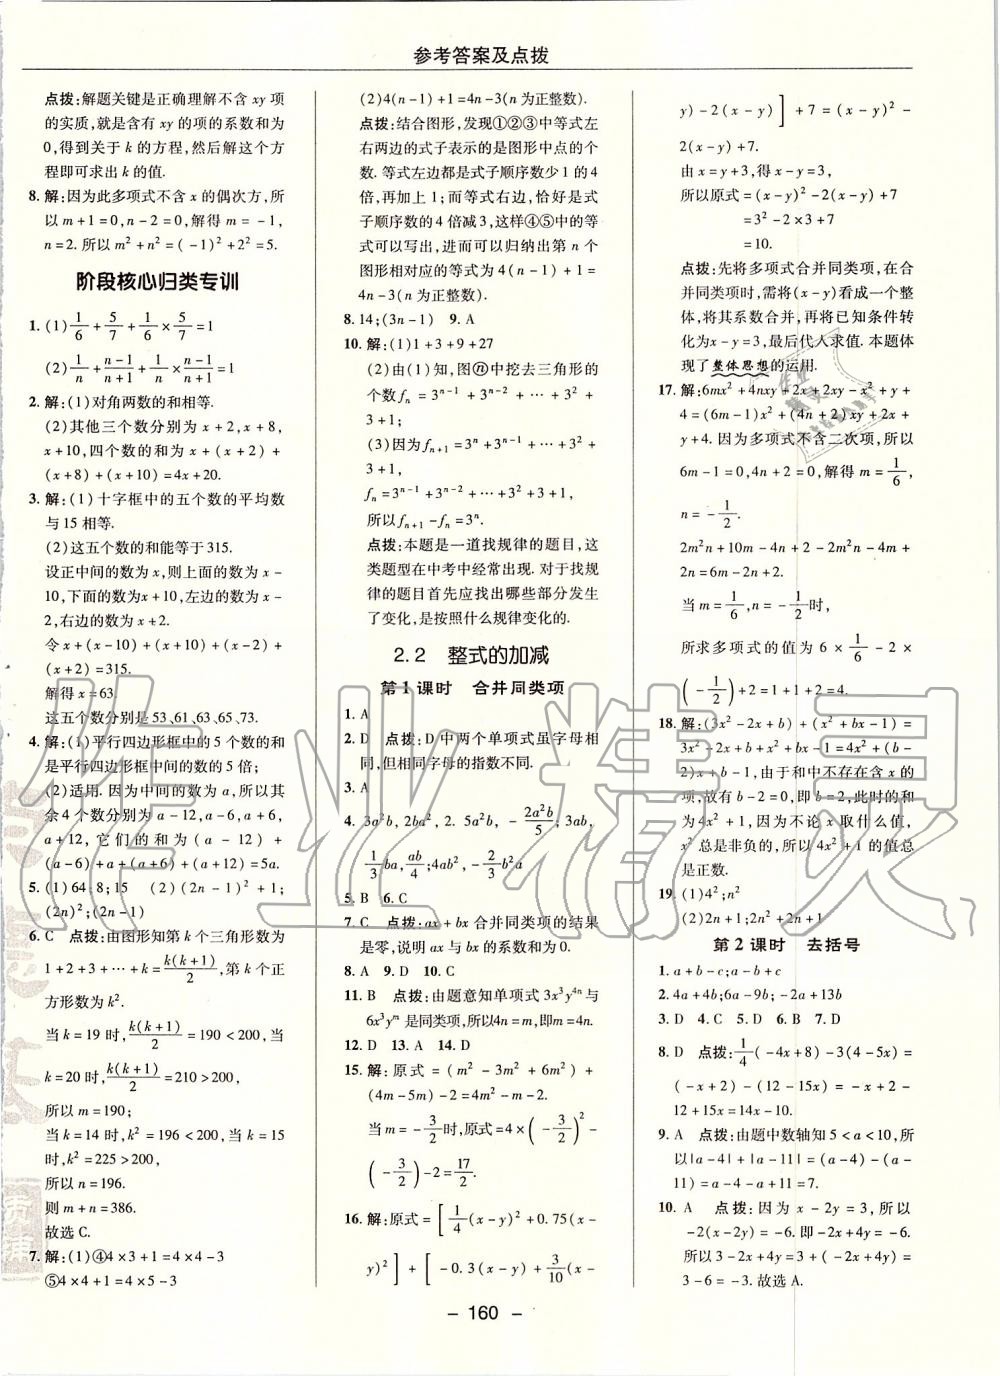 参考答案及点拨
点拨:解题关键是正确理解不含 xy 项
的实质,就是含有 xy 的项的系数和为
0,得到关于 k 的方程,然后解这个方
程即可求出 k 的值.
8. 解:因为此多项式不含 x 的偶次方,所
以 m+1=0,n-2=0,解得 m=-1,
n=2. 所以 m²+n²=(-1)²+2²=5.
阶段核心归类专训
1. (1) 1/6+5/7+1/6×5/7=1
(2) 1/n+(n-1)/(n+1)+1/n×(n-1)/(n+1)=1
2. 解:(1)对角两数的和相等.
(2)其他三个数分别为 x+2,x+8,
x+10,四个数的和为 x+(x+2)+
(x+8)+(x+10)=4x+20.
3. 解:(1)十字框中的五个数的平均数
与 15 相等.
(2)这五个数的和能等于 315.
设正中间的数为 x,则上面的数为 x-
10,下面的数为 x+10,左边的数为 x-
2,右边的数为 x+2.
令 x+(x-10)+(x+10)+(x-2)+
(x+2)=315.
解得 x=63.
这五个数分别是 53、61、63、65、73.
4. 解:(1)平行四边形框中的 5 个数的和
是平行四边形框中间的数的 5 倍;
(2)适用. 因为中间的数为 a,所以其
余 4 个数分别为 a-12,a-6,a+6,
a+12,它们的和为(a-12)+
(a-6)+a+(a+6)+(a+12)=5a.
5. (1)64;8;15 (2)(2n-1)²+1;
(2n)²;(2n-1)
6. C 点拨:由图形知第 k 个三角形数为
1+2+3+…+k=k(k+1)/2,第 k 个正
方形数为 k².
当 k=19 时,k(k+1)/2=190<200,当
k=20 时,k(k+1)/2=210>200,
所以 m=190;
当 k=14 时,k²=196<200,当 k=15
时,k²=225>200,
所以 n=196.
则 m+n=386.
故选 C.
7. 解:(1)④4×3+1=4×4-3
⑤4×4+1=4×5-3
(2)4(n-1)+1=4n-3(n 为正整数).
点拨:结合图形,发现①②③中等式左
右两边的式子表示的是图形中点的个
数. 等式左边都是式子序数少 1 的 4
倍,再加上 1;而等式右边,恰好是式
子顺序数的 4 倍减 3,这样④⑤中的等
式可以写出,进而可以归纳出第 n 个
图形相对应的等式为 4(n-1)+1=
4n-3(n 为正整数).
8. 14;(3n-1) 9. A
10. 解:(1)1+3+9+27
(2)由(1)知,图ⓝ中挖去三角形的
个数 fₙ=3ⁿ⁻¹+3ⁿ⁻²+…+3²+
3+1;
(3)因为 fₙ₊₁=3ⁿ+3ⁿ⁻¹+…+3²+
3+1,
fₙ=3ⁿ⁻¹+3ⁿ⁻²+…+3+1,
所以 fₙ₊₁-fₙ=3ⁿ.
点拨:本题是一道找规律的题目,这
类题型在中考中经常出现. 对于找规
律的题目首先应找出哪些部分发生
了变化,是按照什么规律变化的.
2.2 整式的加减
第 1 课时 合并同类项
1. A
2. D 点拨:D 中两个单项式虽字母相
同,但相同字母的指数不同.
3. A
4. 3a²b,2ba²,2.5a²b,-2a²b/5;3ab,
1/3ba,ab/4;4ab²,-b²a
5. B 6. C
7. C 点拨:ax+bx 合并同类项的结果
是零,说明 ax 与 bx 的系数和为 0.
8. A 9. D 10. C
11. B 点拨:由题意知单项式 3x³y⁴ⁿ与
6x³yᵐ 是同类项,所以4n=m,即m=4n.
12. D 13. A 14. D
15. 解:原式=(m²-3m²+6m²)+
(4m-5m)-2=4m²-m-2.
当 m=-3/2时,原式=4×(-3/2)²-
(-3/2)-2=17/2.
16. 解:原式=[1/4(x-y)²+0.75(x-
y)²]+[-0.3(x-y)+3/10(x-
y)-2(x-y)]+7=(x-y)²-
2(x-y)+7.
由 x=y+3,得 x-y=3,
所以原式=(x-y)²-2(x-y)+7
=3²-2×3+7
=10.
点拨:先将多项式合并同类项,在合
并同类项时,需将(x-y)看成一个整
体,将其系数合并,再将已知条件转
化为x-y=3,最后代入求值. 本题体
现了整体思想的运用.
17. 解:6mx²+4nxy+2x+2xy-x²+y+
4=(6m-1)x²+(4n+2)xy+2x+
y+4. 因为多项式不含二次项,所以
6m-1=0,4n+2=0,解得 m=1/6,
n=-1/2.
2m²n+10m-4n+2-2m²n-4m+
2n=6m-2n+2.
当 m=1/6,n=-1/2时,
所求多项式的值为 6×1/6-2×
(-1/2)+2=1+1+2=4.
18. 解:(3x²-2x+b)+(x²+bx-1)=
3x²-2x+b+x²+bx-1=4x²+(b-
2)x+b-1,由于和中不存在含 x 的
项,故有 b-2=0,即 b=2,此时的和
为 4x²+1,因为不论 x 取什么值,
x² 总是非负的,所以 4x²+1 的值总
是正数.
19. (1)4²;n²
(2)2n+1;2n²+2n+1
第 2 课时 去括号
1. a+b-c;a-b+c
2. 4a+4b;6a-9b;-2a+13b
3. D 4. C 5. D 6. B 7. D
8. D 点拨:1/4(-4x+8)-3(4-5x)=
(-x+2)-(12-15x)=-x+2-
12+15x=14x-10.
9. A 点拨:由题中数轴知 5<a<10,所
以|a-4|+|a-11|=(a-4)-(a-
11)=a-4-a+11=7.
10. A 点拨:因为 x-2y=3,所以
-2(x-2y)=-6. 即-2x+4y=-6.
所以 3-2x+4y=3+(-2x+4y)=
3-6=-3. 故选 A.
- 160 -
作业精灵